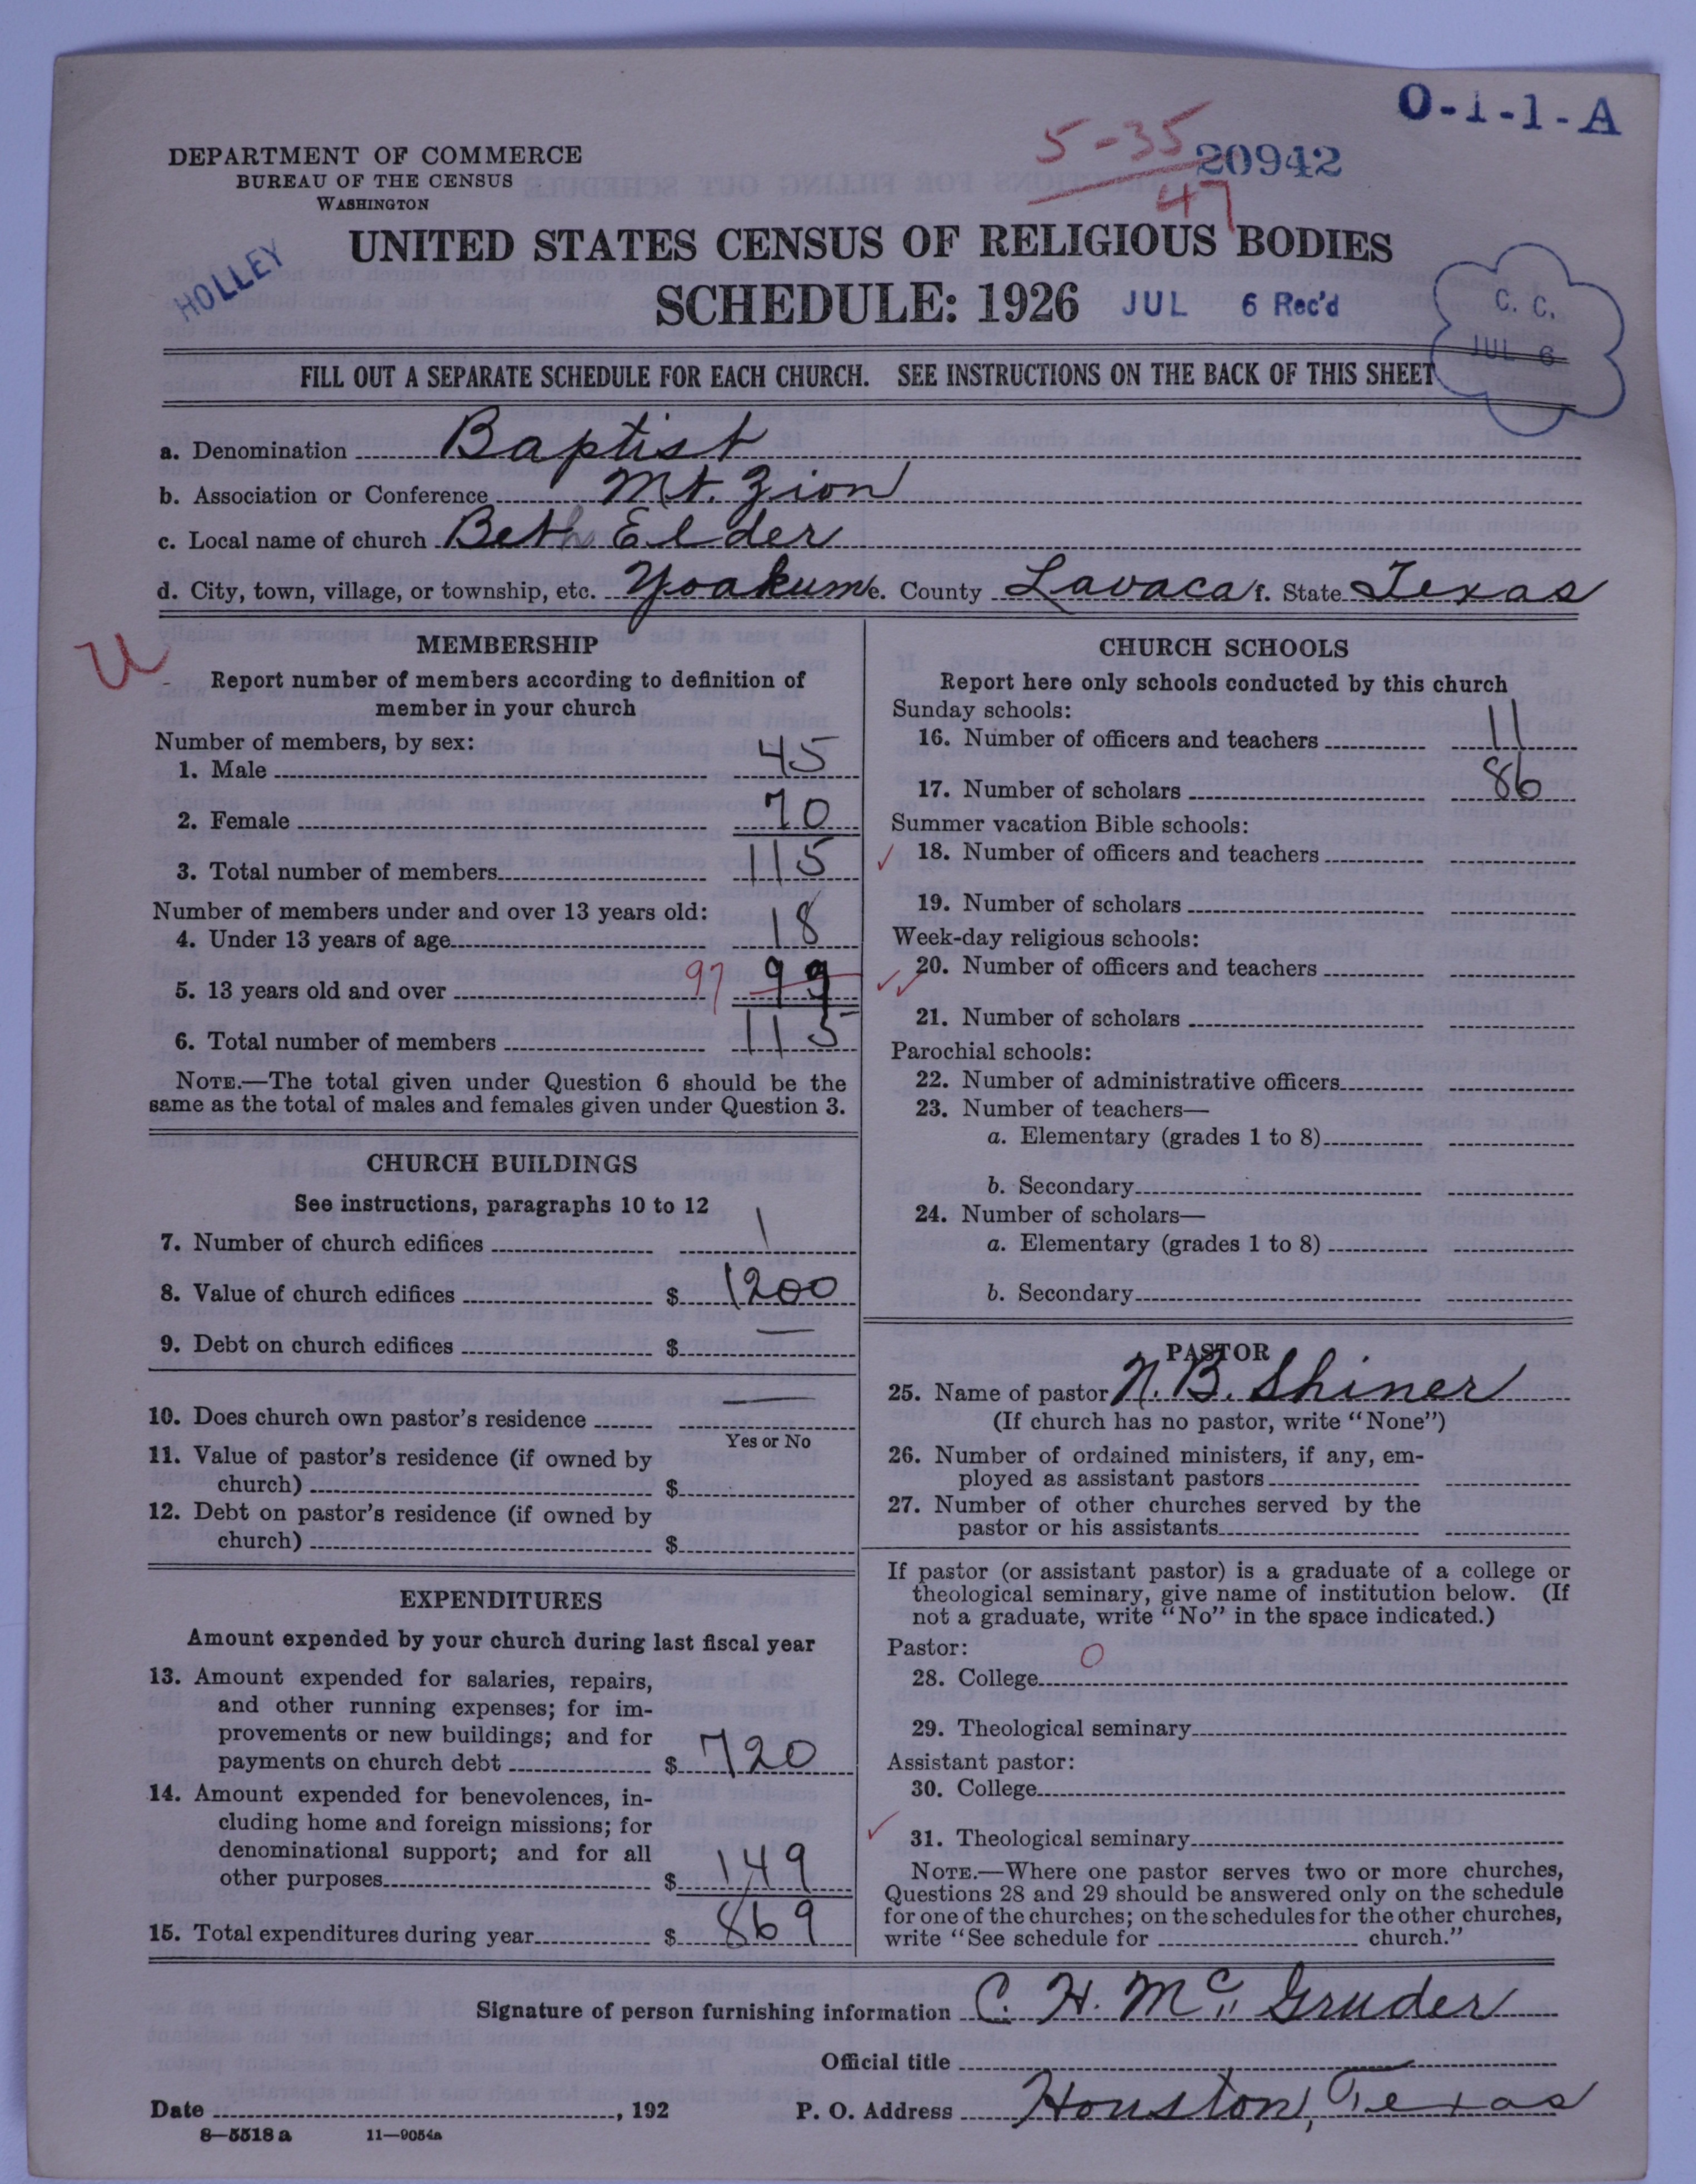 O-1-1-A
5-35
20942
47
DEPARTMENT OF COMMERCE
BUREAU OF THE CENSUS
WASHINGTON
HOLLEY
UNITED STATES CENSUS OF RELIGIOUS BODIES
SCHEDULE: 1926 JUL 6 Rec'd
C. C.
JUL 6
FILL OUT A SEPARATE SCHEDULE FOR EACH CHURCH. SEE INSTRUCTIONS ON THE BACK OF THIS SHEET
a. Denomination Baptist
b. Association or Conference Mt. Zion
c. Local name of church Beth Elder
d. City, town, village, or township, etc. Yoakum e. County Lavaca f. State Texas
U
MEMBERSHIP
Report number of members according to definition of
member in your church
Number of members, by sex:
1. Male 45
2. Female 70
3. Total number of members 115
Number of members under and over 13 years old:
4. Under 13 years of age 18
5. 13 years old and over 97 99
6. Total number of members 115
NOTE.—The total given under Question 6 should be the
same as the total of males and females given under Question 3.
CHURCH BUILDINGS
See instructions, paragraphs 10 to 12
7. Number of church edifices 1
8. Value of church edifices $ 1200
9. Debt on church edifices $ —
10. Does church own pastor's residence —
Yes or No
11. Value of pastor's residence (if owned by
church) $
12. Debt on pastor's residence (if owned by
church) $
EXPENDITURES
Amount expended by your church during last fiscal year
13. Amount expended for salaries, repairs,
and other running expenses; for im-
provements or new buildings; and for
payments on church debt $ 720
14. Amount expended for benevolences, in-
cluding home and foreign missions; for
denominational support; and for all
other purposes $ 149
15. Total expenditures during year $ 869
CHURCH SCHOOLS
Report here only schools conducted by this church
Sunday schools:
16. Number of officers and teachers 11
17. Number of scholars 86
Summer vacation Bible schools:
✓ 18. Number of officers and teachers
19. Number of scholars
Week-day religious schools:
✓✓ 20. Number of officers and teachers
21. Number of scholars
Parochial schools:
22. Number of administrative officers
23. Number of teachers—
a. Elementary (grades 1 to 8)
b. Secondary
24. Number of scholars—
a. Elementary (grades 1 to 8)
b. Secondary
PASTOR
25. Name of pastor N. B. Shiner
(If church has no pastor, write "None")
26. Number of ordained ministers, if any, em-
ployed as assistant pastors
27. Number of other churches served by the
pastor or his assistants
If pastor (or assistant pastor) is a graduate of a college or
theological seminary, give name of institution below. (If
not a graduate, write "No" in the space indicated.)
Pastor:
28. College 0
29. Theological seminary
Assistant pastor:
30. College
✓ 31. Theological seminary
NOTE.—Where one pastor serves two or more churches,
Questions 28 and 29 should be answered only on the schedule
for one of the churches; on the schedules for the other churches,
write "See schedule for church."
Signature of person furnishing information C. H. McGruder
Official title
Date , 192 P. O. Address Houston, Texas
8—5518 a 11—9054a